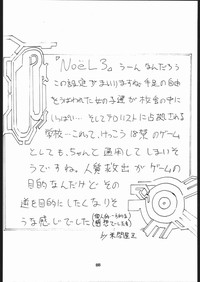 『NOëL3』うーんなんだろう
この設定がまいりますね。手足の自由
をうばわれた女の子達が校舎の中に
いっぱい… そしてテロリストに占拠される
学校… これって、けっこう18禁のゲーム
としても、ちゃんと通用してしまいそ
うですね。人質救出がゲームの
目的なんだけど その
道を目的にしたくなりそ
うな感じでした
by